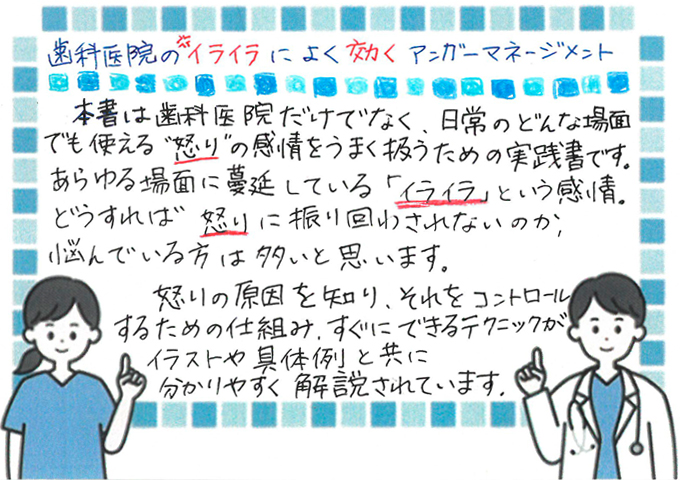 歯科医院のイライラによく効くアンガーマネージメント
本書は歯科医院だけでなく、日常のどんな場面
でも使える"怒り"の感情をうまく扱うための実践書です。
あらゆる場面に蔓延している「イライラ」という感情。
どうすれば怒りに振り回わされないのか、
悩んでいる方は多いと思います。
怒りの原因を知り、それをコントロール
するための仕組み、すぐにできるテクニックが
イラストや具体例と共に
分かりやすく解説されています。